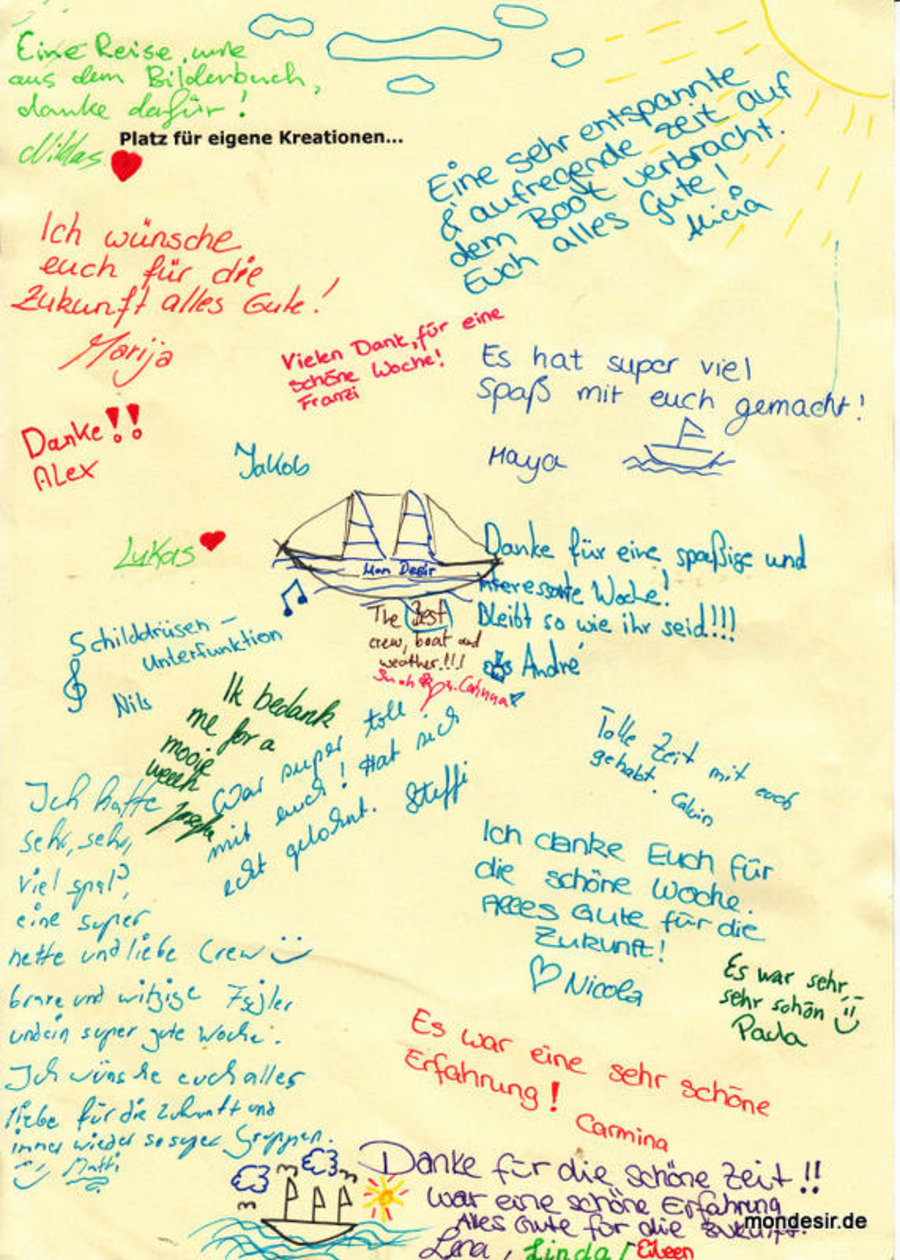 Eine Reise, wie
aus dem Bilderbuch,
danke dafür!
Niklas
Platz für eigene Kreationen...
Eine sehr entspannte
& aufregende Zeit auf
dem Boot verbracht.
Euch alles Gute!
Alicia
Ich wünsche
euch für die
Zukunft alles Gute!
Marija
Vielen Dank, für eine
schöne Woche!
Franzi
Es hat super viel
Spaß mit euch gemacht!
Maya
Danke!!
Alex
Jakob
Lukas
Mon Desir
Danke für eine spaßige und
interessante Woche!
Bleibt so wie ihr seid!!!
André
The Best
crew, boat and
weather!!!
Schilddrüsen -
Unterfunktion
Nils
Ik bedank
me for a
mooie
week
War super toll
mit euch! Hat sich
echt gelohnt. Steffi
Tolle Zeit mit euch
gehabt. Calvin
Ich hatte
sehr, sehr,
viel spaß,
eine super
nette und liebe Crew
brave und witzige
und ein super gute Woche.
Ich wünsche euch alles
liebe für die Zukunft und
immer wieder so super Gruppen.
Matti
Ich danke Euch für
die schöne Woche.
Alles Gute für die
Zukunft!
Nicola
Es war sehr,
sehr schön
Paula
Es war eine sehr schöne
Erfahrung!
Carmina
Danke für die schöne Zeit!!
War eine schöne Erfahrung
Alles Gute für die Zukunft!
Lena, Linda, Eileen
mondesir.de